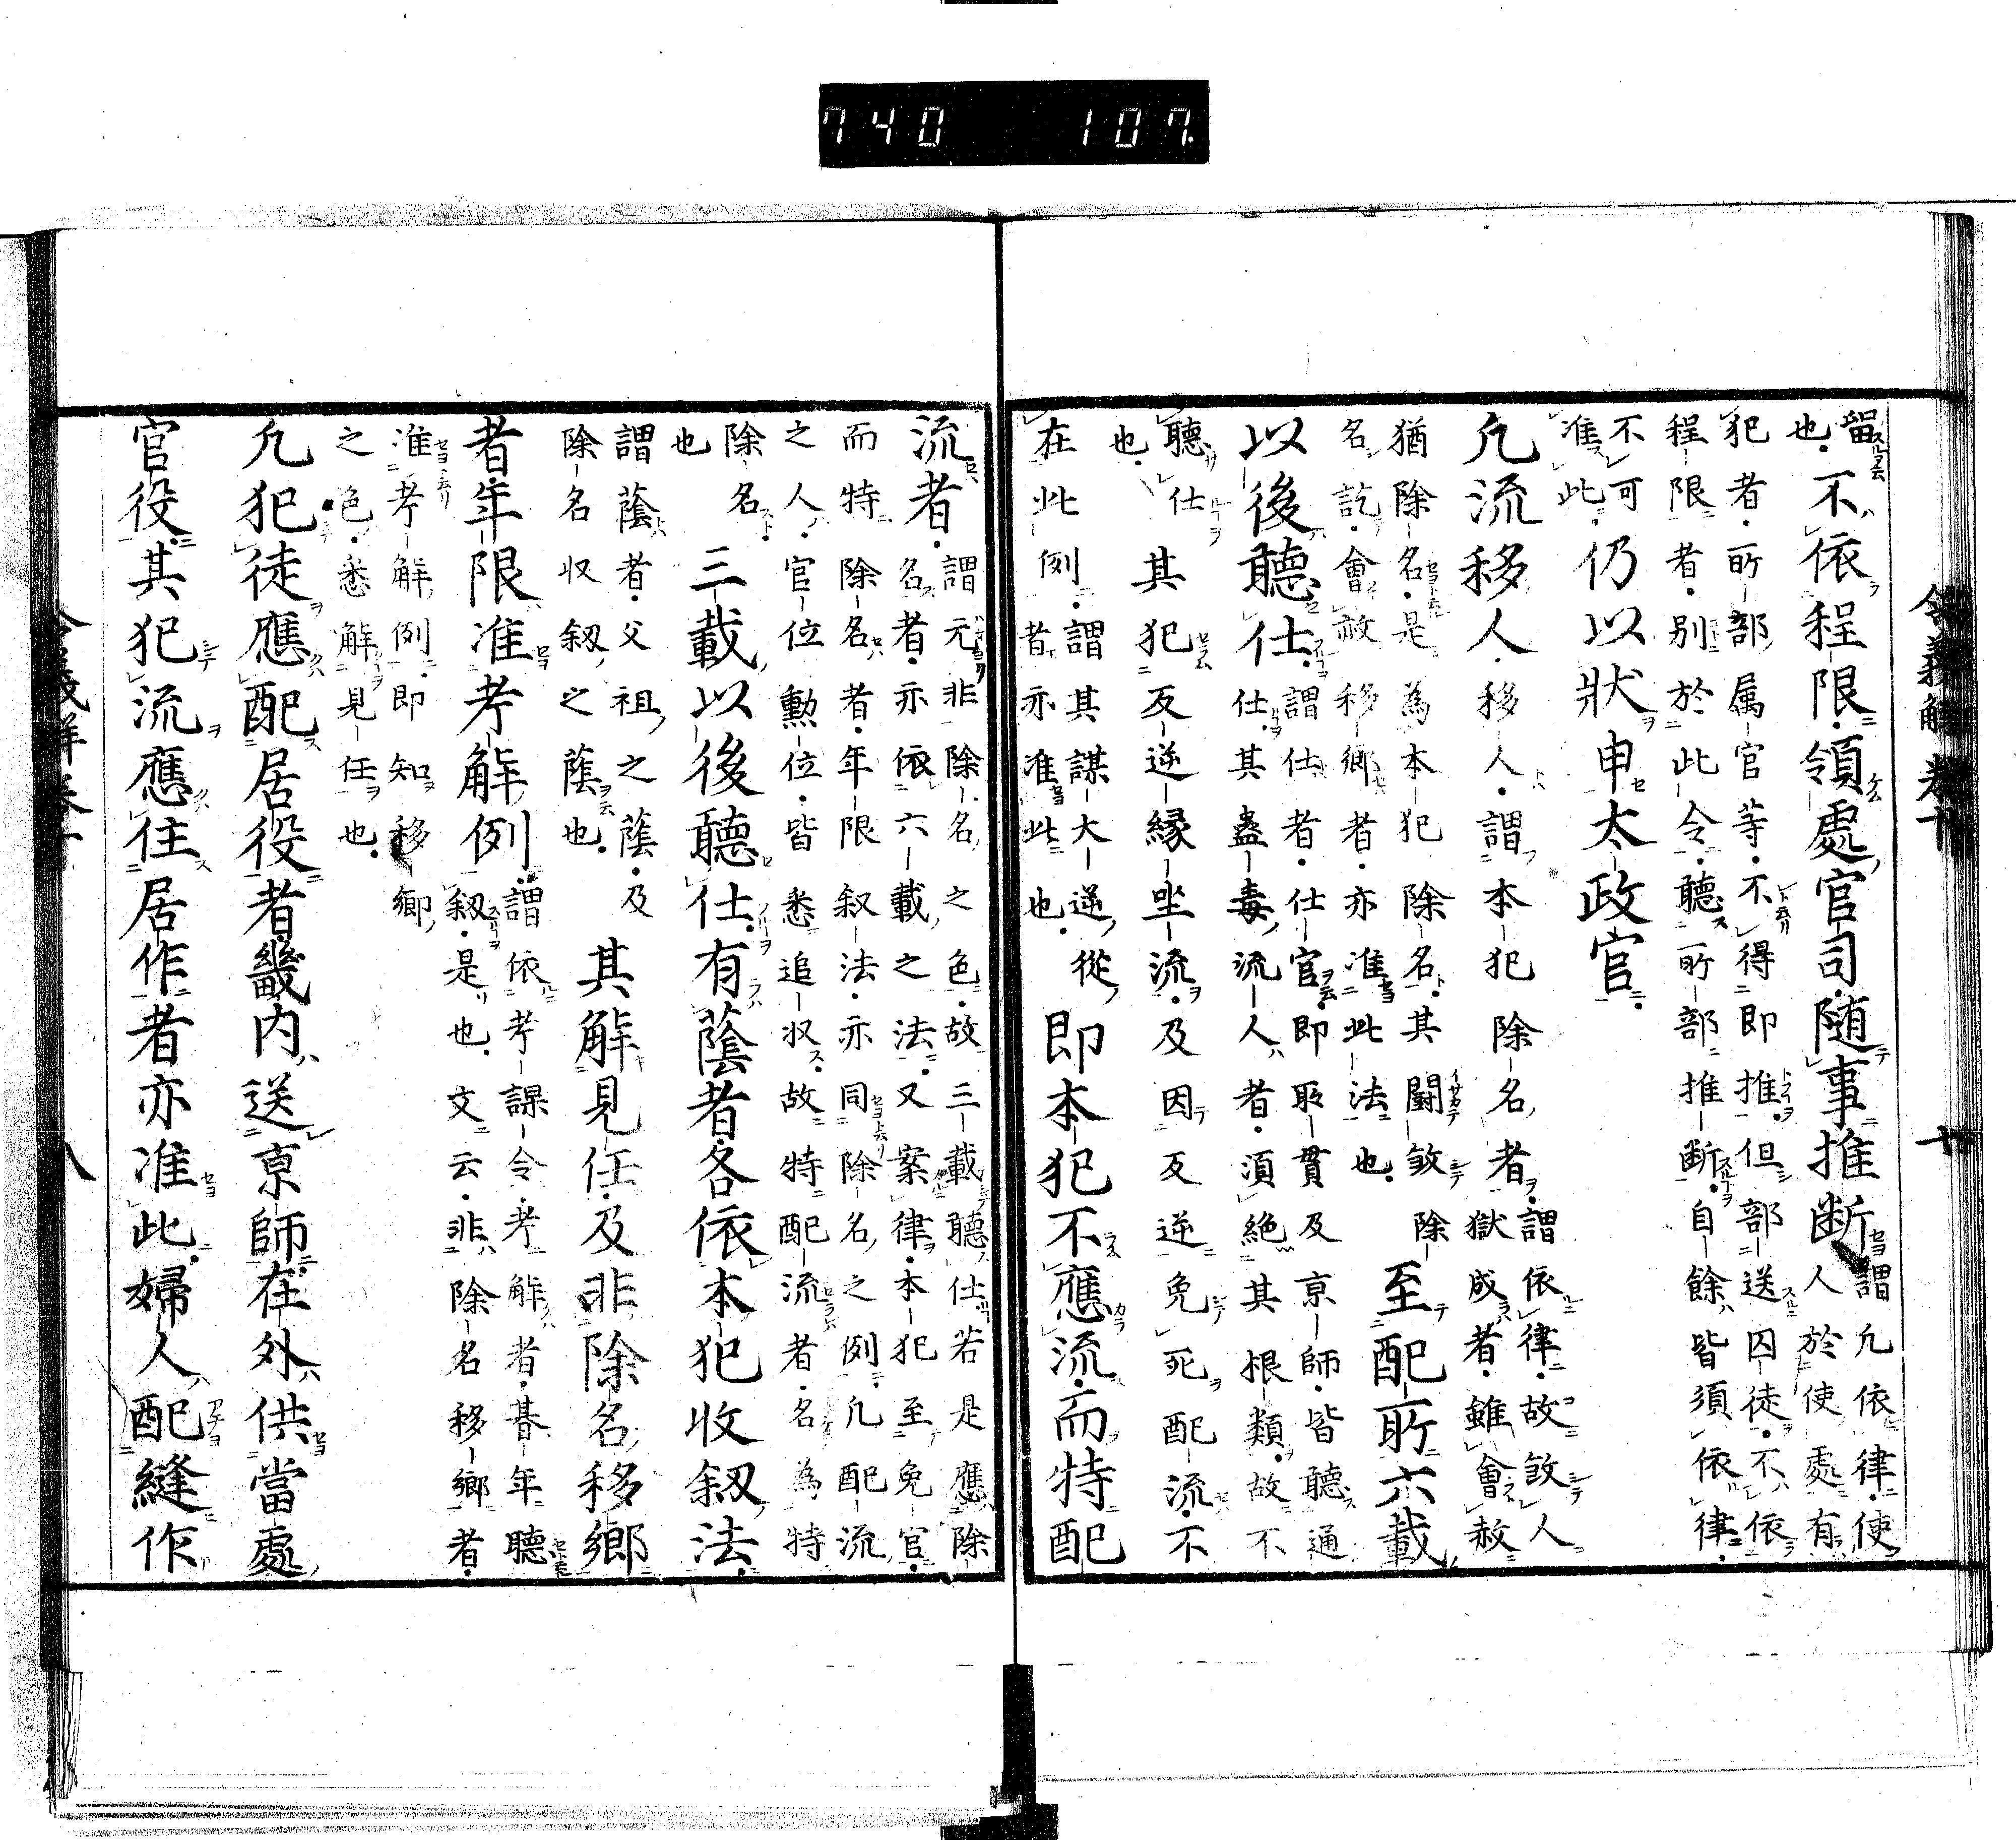 740 107
令義解卷十 廿
留
也不依程限領處官司随事推断謂凡依律使
人於使處有
犯者所部属官等不得即推但部送囚徒不依
程限者別於此令聽所部推断自餘皆須依律
不可
准此仍以状申太政官
凡流移人移人謂本犯除名者謂依律故敚人
獄成者雖會赦
猶除名是為本犯除名其闘敚除
名訖會赦移郷者亦准此法也至配所六載
以後聽仕謂仕者仕官即取貫及京師皆聽通
仕其蠱毒流人者須絶其根類故不
聽仕
也其犯反逆縁坐流及因反逆免死配流不
在此例謂其謀大逆從
者亦准此也即本犯不應流而特配
流者謂元非除名之色故三載聽仕若是應除
名者亦依六載之法又案律本犯至免官
而特除名者年限叙法亦同除名之例凡配流
之人官位勲位皆悉追収故特配流者名為特
除名
也三載以後聽仕有蔭者各依本犯收叙法
謂蔭者父祖之蔭及
除名収叙之蔭也其解見任及非除名移郷
者年限准考解例謂依考課令考解者朞年聽
叙是也文云非除名移郷者
准考解例即知移郷
之色悉解見任也
凡犯徒應配居役者畿内送京師在外供當處
官役其犯流應住居作者亦准此婦人配縫作
令義解卷十 八